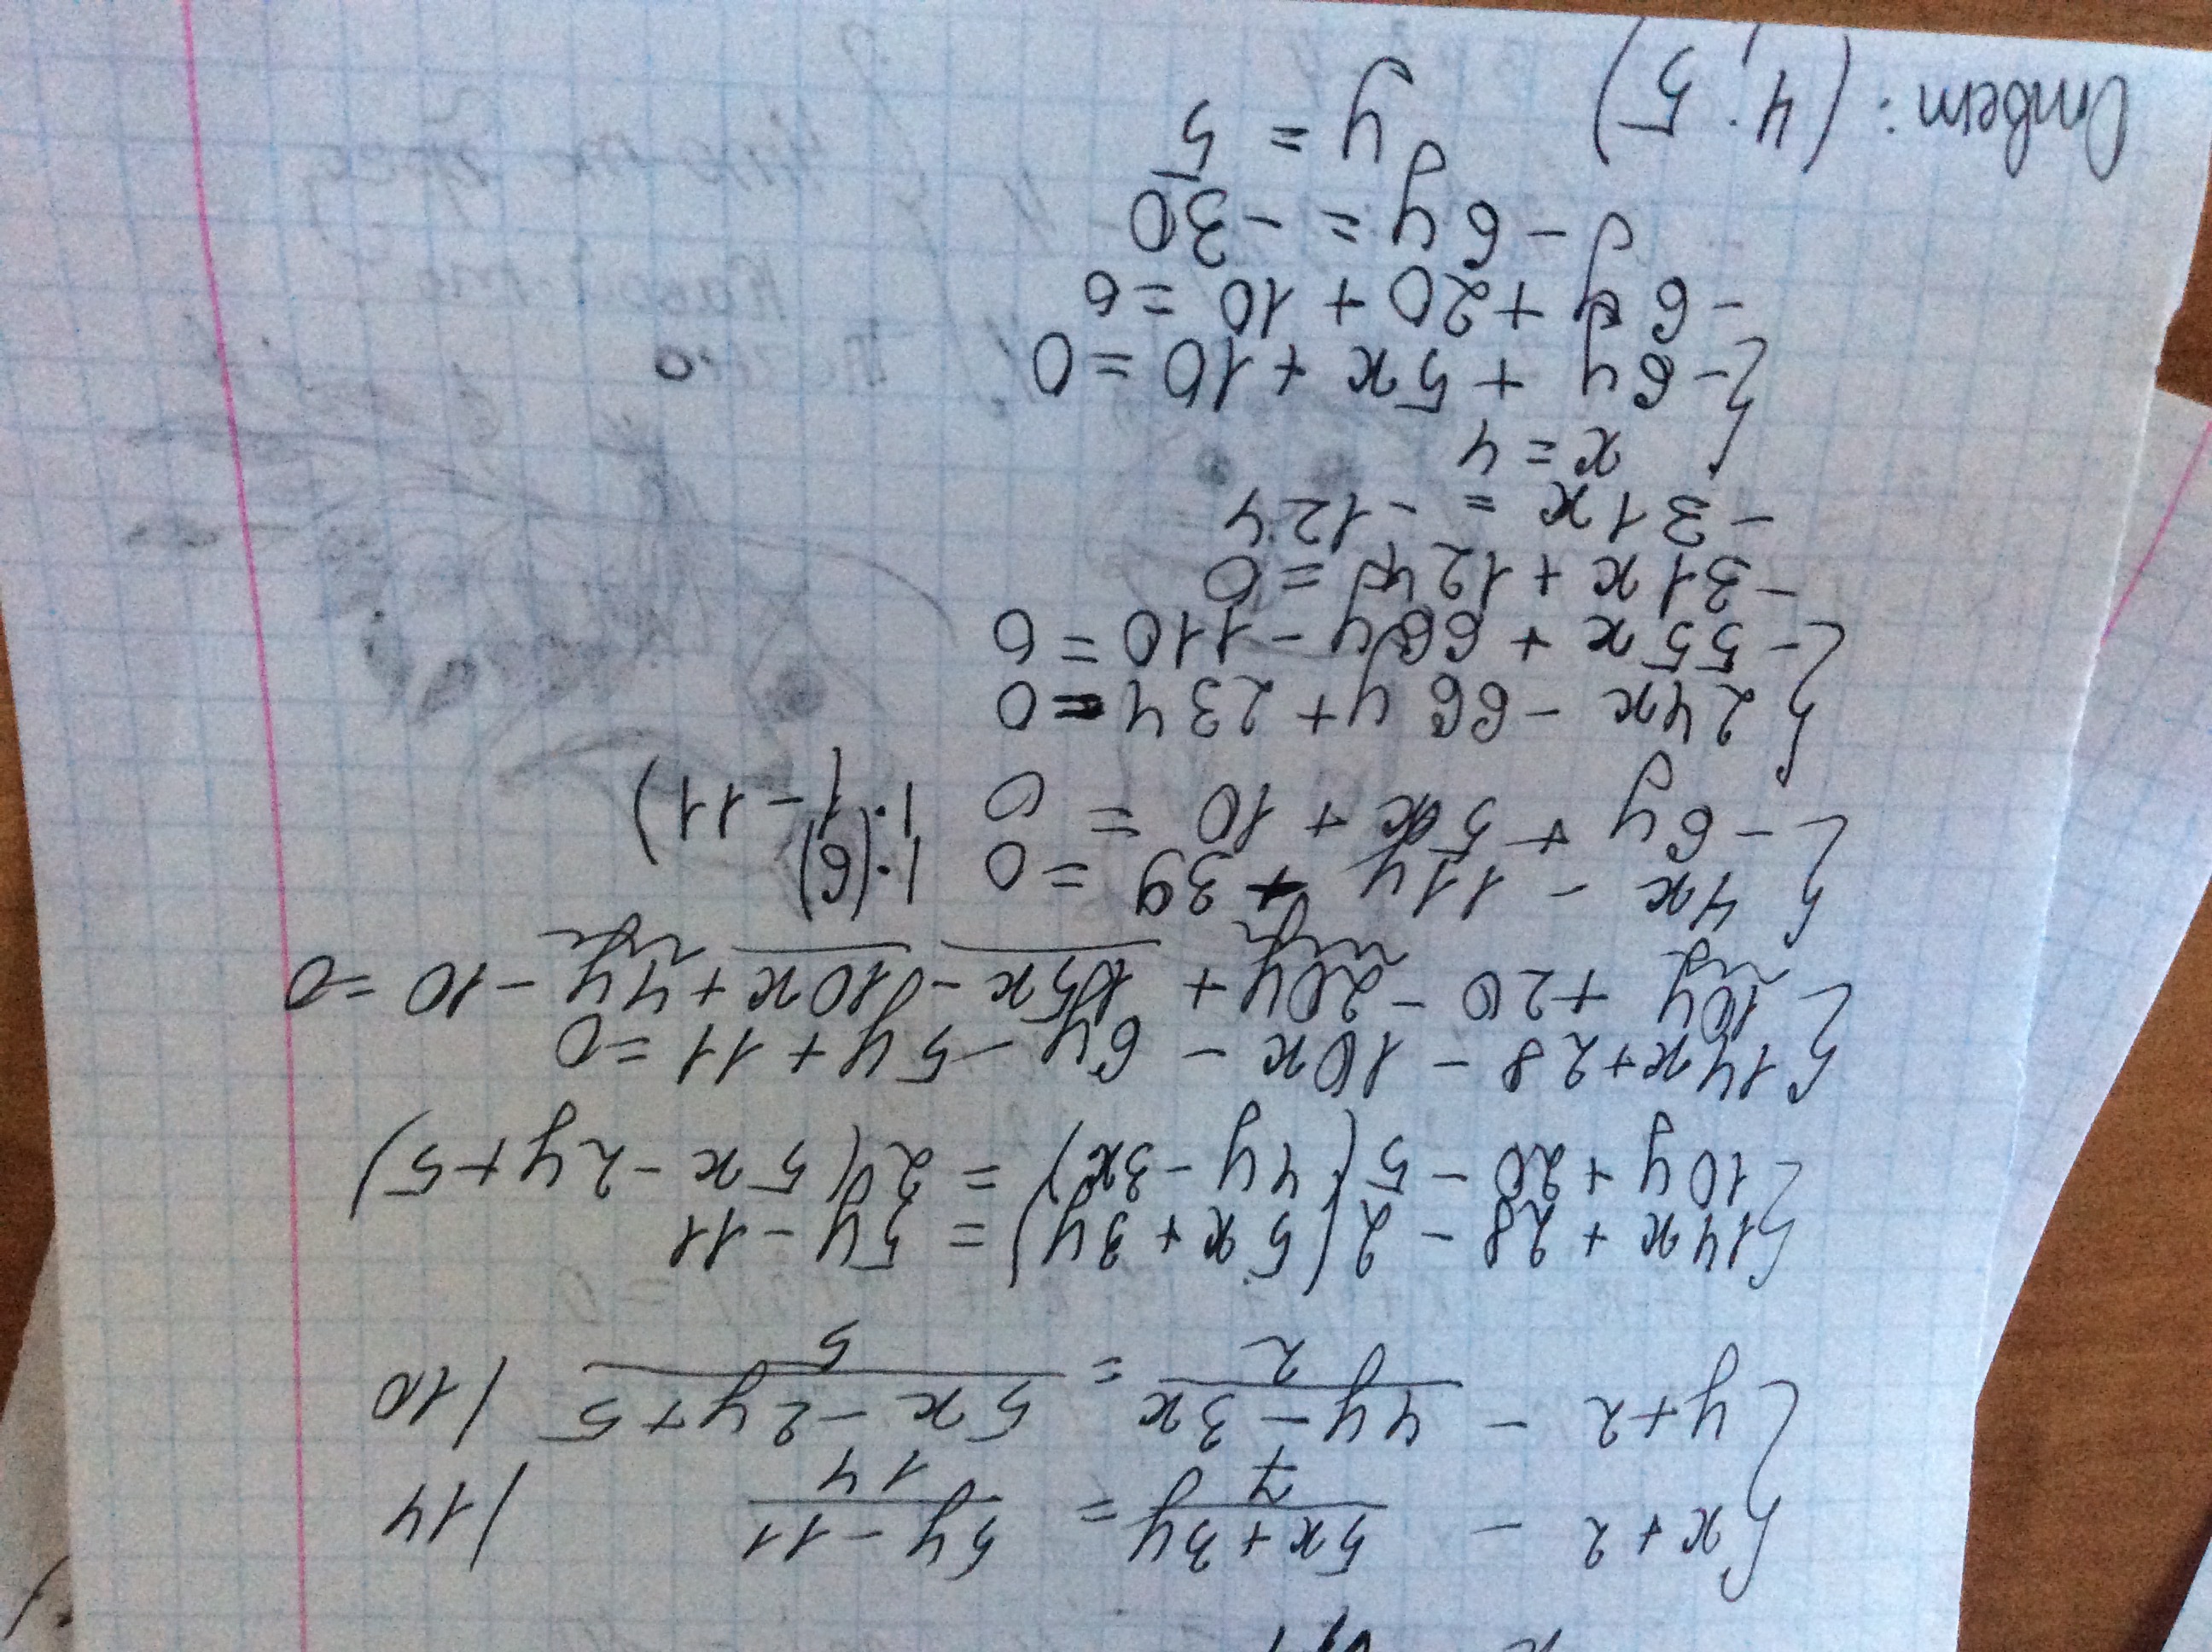 { x + 2 - \frac{5x + 3y}{7} = \frac{5y - 11}{14} | 14
{ y + 2 - \frac{4y - 3x}{2} = \frac{5x - 2y + 5}{5} | 10
{ 14x + 28 - 2(5x + 3y) = 5y - 11
{ 10y + 20 - 5(4y - 3x) = 2(5x - 2y + 5)
{ 14x + 28 - 10x - 6y - 5y + 11 = 0
{ 10y + 20 - 20y + 15x - 10x + 4y - 10 = 0
{ 4x - 11y + 39 = 0 |·(6)
{ -6y + 5x + 10 = 0 |·(-11)
{ 24x - 66y + 234 = 0
{ -55x + 66y - 110 = 0
-31x + 124 = 0
-31x = -124
{ x = 4
{ -6y + 5x + 10 = 0
-6y + 20 + 10 = 0
-6y = -30
y = 5
Ответ: (4; 5)